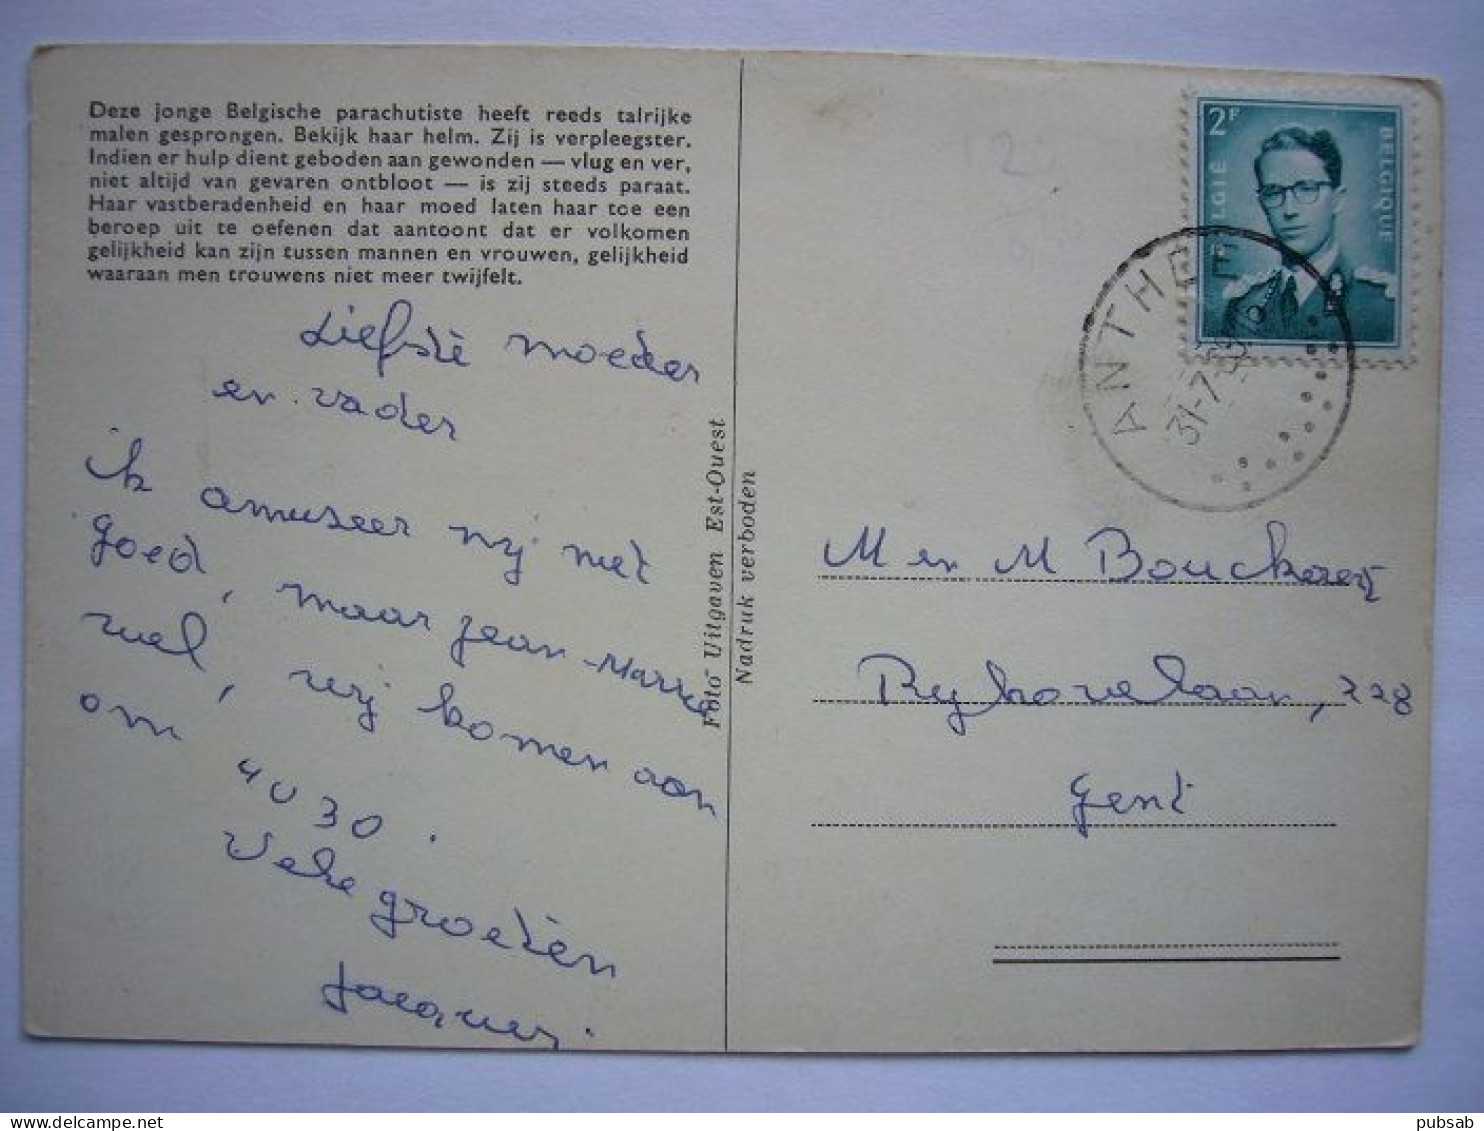 Deze jonge Belgische parachutiste heeft reeds talrijke
malen gesprongen. Bekijk haar helm. Zij is verpleegster.
Indien er hulp dient geboden aan gewonden — vlug en ver,
niet altijd van gevaren ontbloot — is zij steeds paraat.
Haar vastberadenheid en haar moed laten haar toe een
beroep uit te oefenen dat aantoont dat er volkomen
gelijkheid kan zijn tussen mannen en vrouwen, gelijkheid
waaraan men trouwens niet meer twijfelt.
Liefste moeder
en vader
ik amuseer mij niet
goed, maar Jean-Marie
wel, wij komen aan
om 4 U 30.
Vele groeten
Jacques.
Foto Uitgaven Est-Ouest
Nadruk verboden
2F
BELGIE
BELGIQUE
ANTHEE
31-7-
M en M Bouckaert
Ryhovelaan, 228
Gent
pubsab